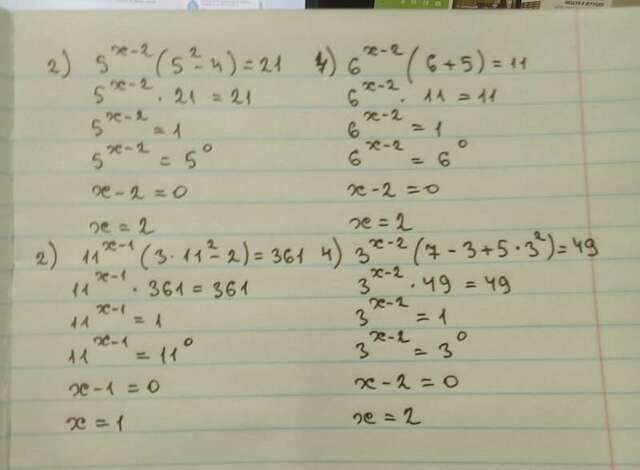 2) 5^{x-2}(5^2-4)=21
5^{x-2} · 21 = 21
5^{x-2} = 1
5^{x-2} = 5^0
x-2=0
x=2
4) 6^{x-2}(6+5)=11
6^{x-2} · 11 = 11
6^{x-2} = 1
6^{x-2} = 6^0
x-2=0
x=2
2) 11^{x-1}(3·11^2-2)=361
11^{x-1} · 361 = 361
11^{x-1} = 1
11^{x-1} = 11^0
x-1=0
x=1
4) 3^{x-2}(7-3+5·3^2)=49
3^{x-2} · 49 = 49
3^{x-2} = 1
3^{x-2} = 3^0
x-2=0
x=2